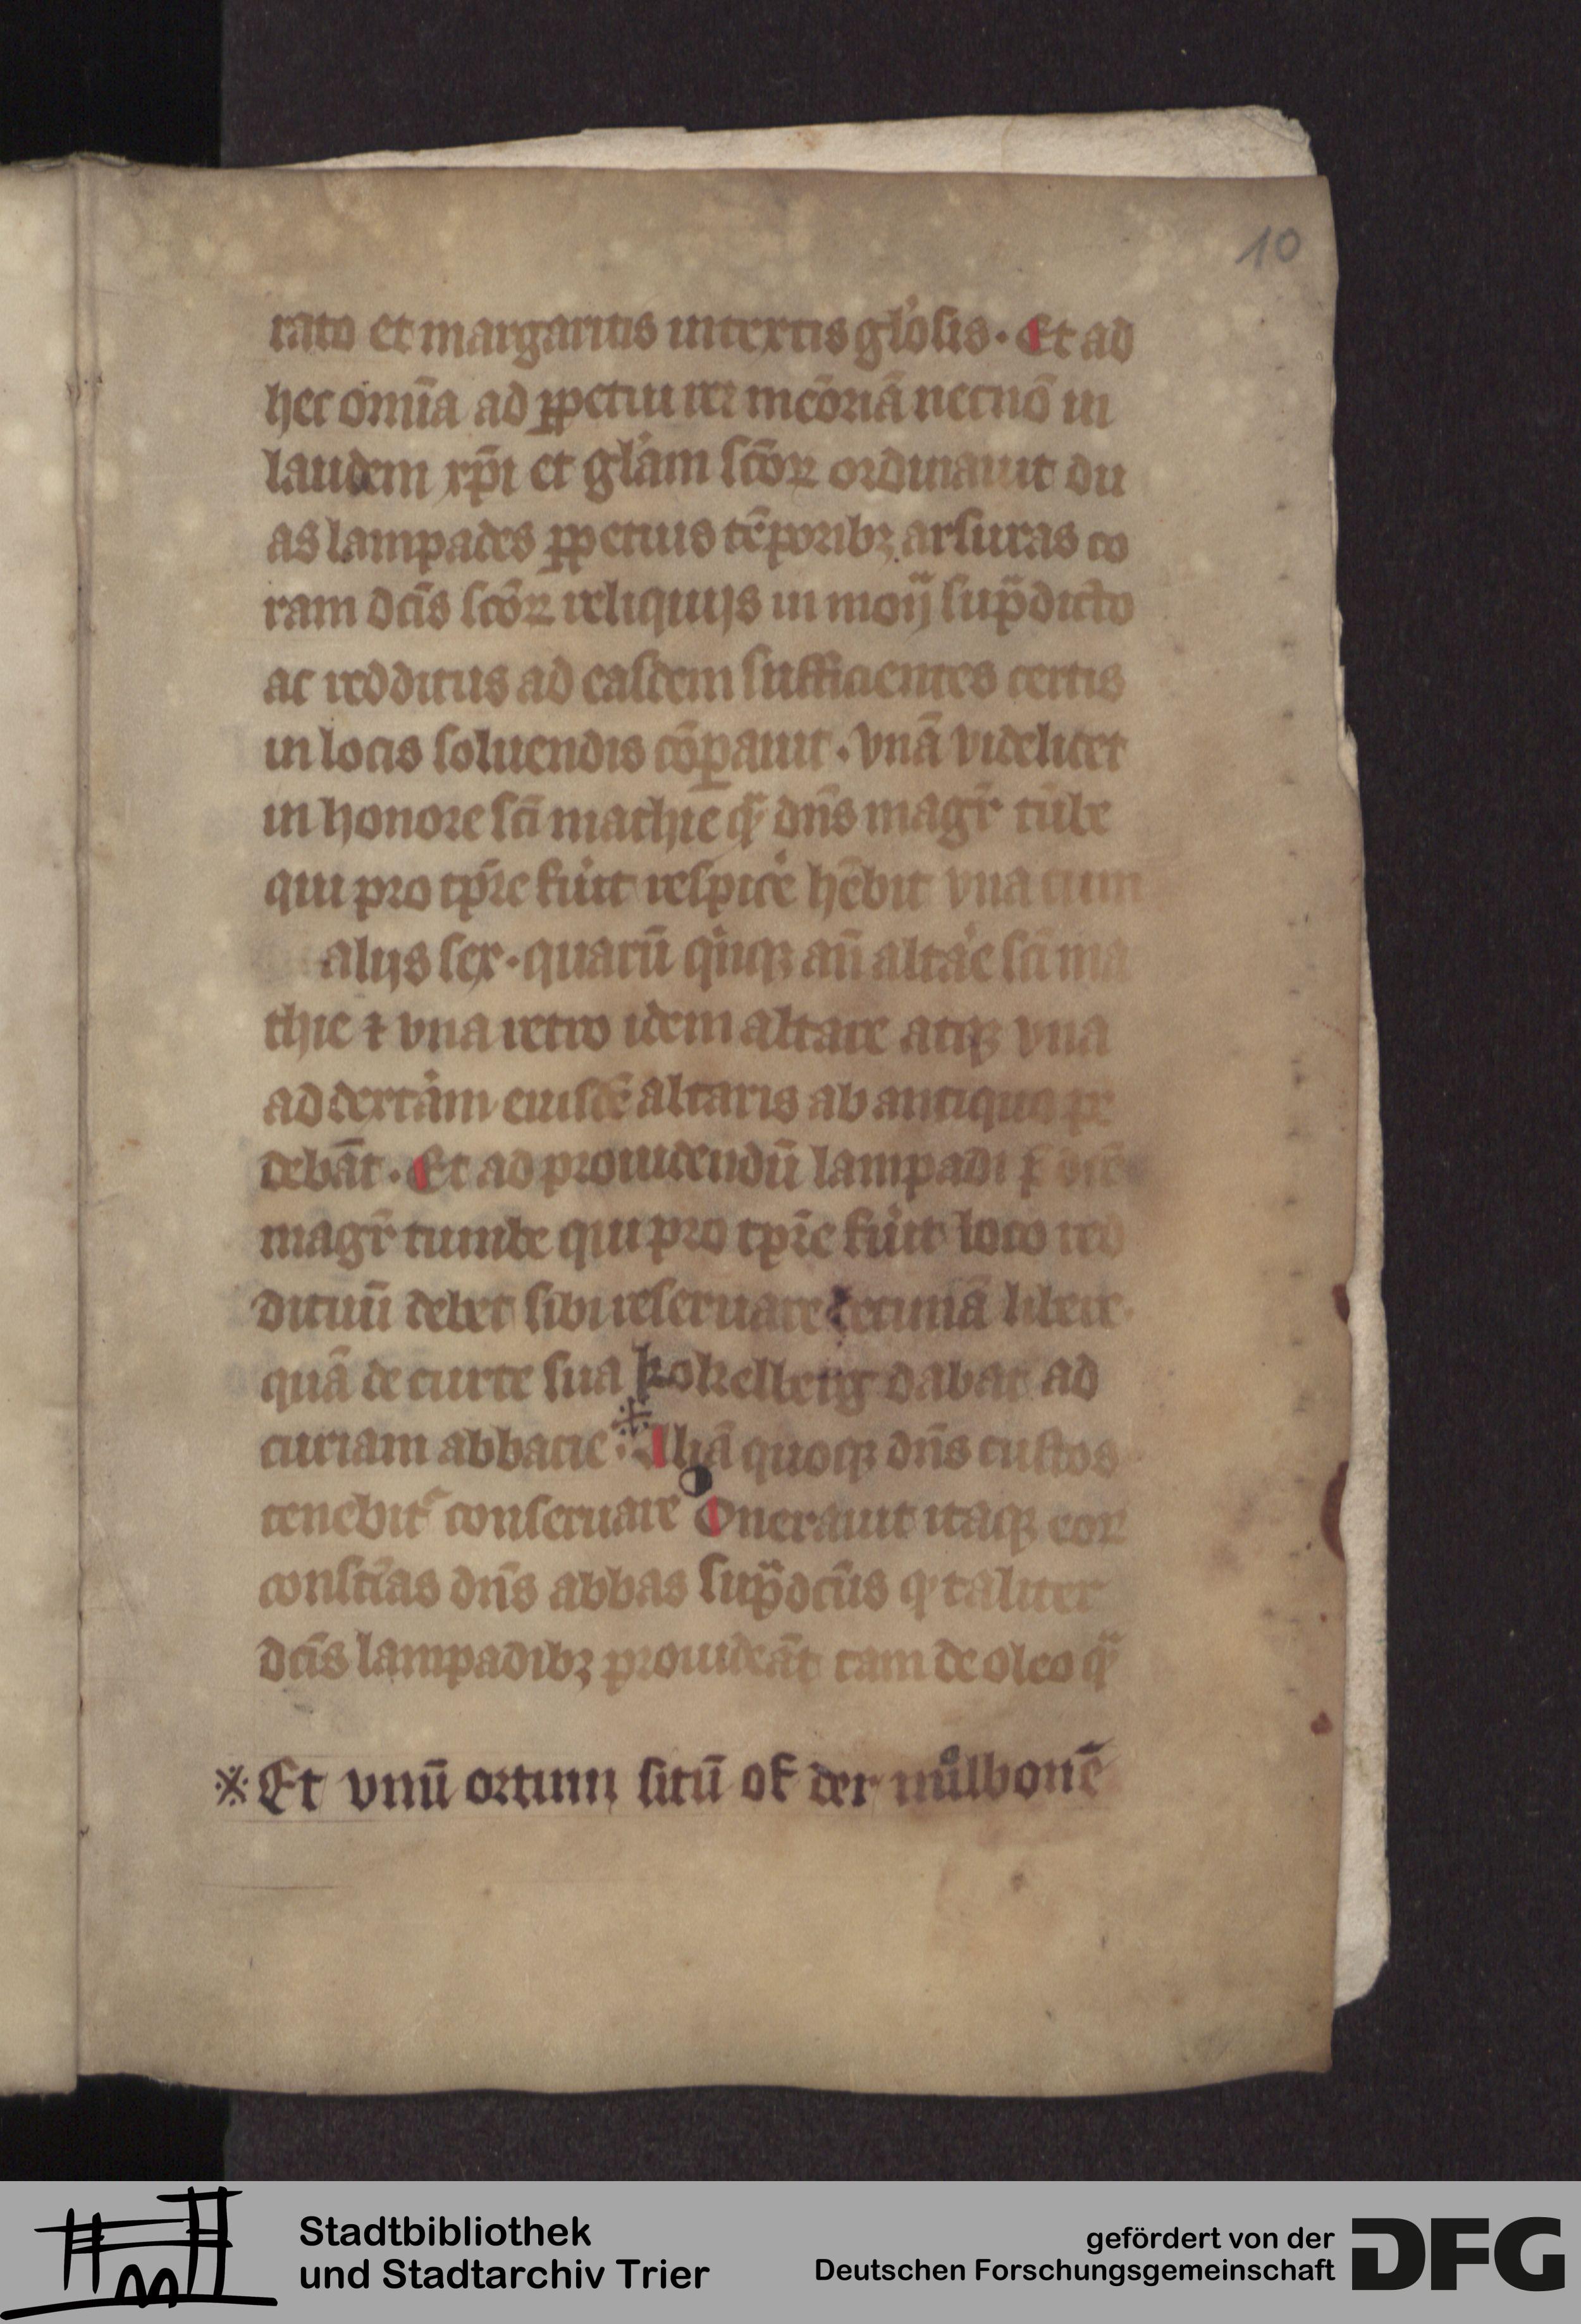 10
rato et margaritis intextis gl'osis. Et ad
hec om̄ia ad ꝑpetuā rei mēoriā necnō in
laudem xp̄i et gl'am sc̄oꝝ ordinauit du
as lampades ꝑpetuis tēporibꝫ arsuras co
ram dc̄is sc̄oꝝ reliquijs in moñ sup̄dicto
ac redditus ad easdem sufficientes certis
in locis soluendis cōꝑauit. vnā videlicet
in honore sc̄i mathie q̄ dn̄s magr̄ tūbe
qui pro tp̄re fu'it respic'e hēbit vna cum
alijs sex. quarū q'nqꝫ an̄ altar'e sc̄i ma
thie ⁊ vna retro idem altare atqꝫ vna
ad dextram eiusdē altaris ab antiquo pē
debāt. Et ad prouidendū lampadi p̄dicte
magr̄ tumbe qui pro tp̄re fu'it loco red
dituū debet sibi reseruare decimā libere
quā de curte sua kokelberg dabat ad
curiam abbacie ※ Aliā quoqꝫ dn̄s custos
tenebit᷑ conseruare Onerauit itaqꝫ eoꝝ
consc'ias dn̄s abbas sup̄dc̄us qͥ taliter
dc̄is lampadibꝫ prouideāt tam de oleo q̄
※ Et vnū ortum sitū of der mu̇lbonē
Stadtbibliothek
und Stadtarchiv Trier
gefördert von der
Deutschen Forschungsgemeinschaft
DFG